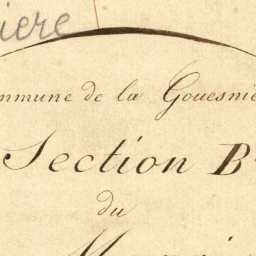 iere
mmune de la Gouesni
Section B
du